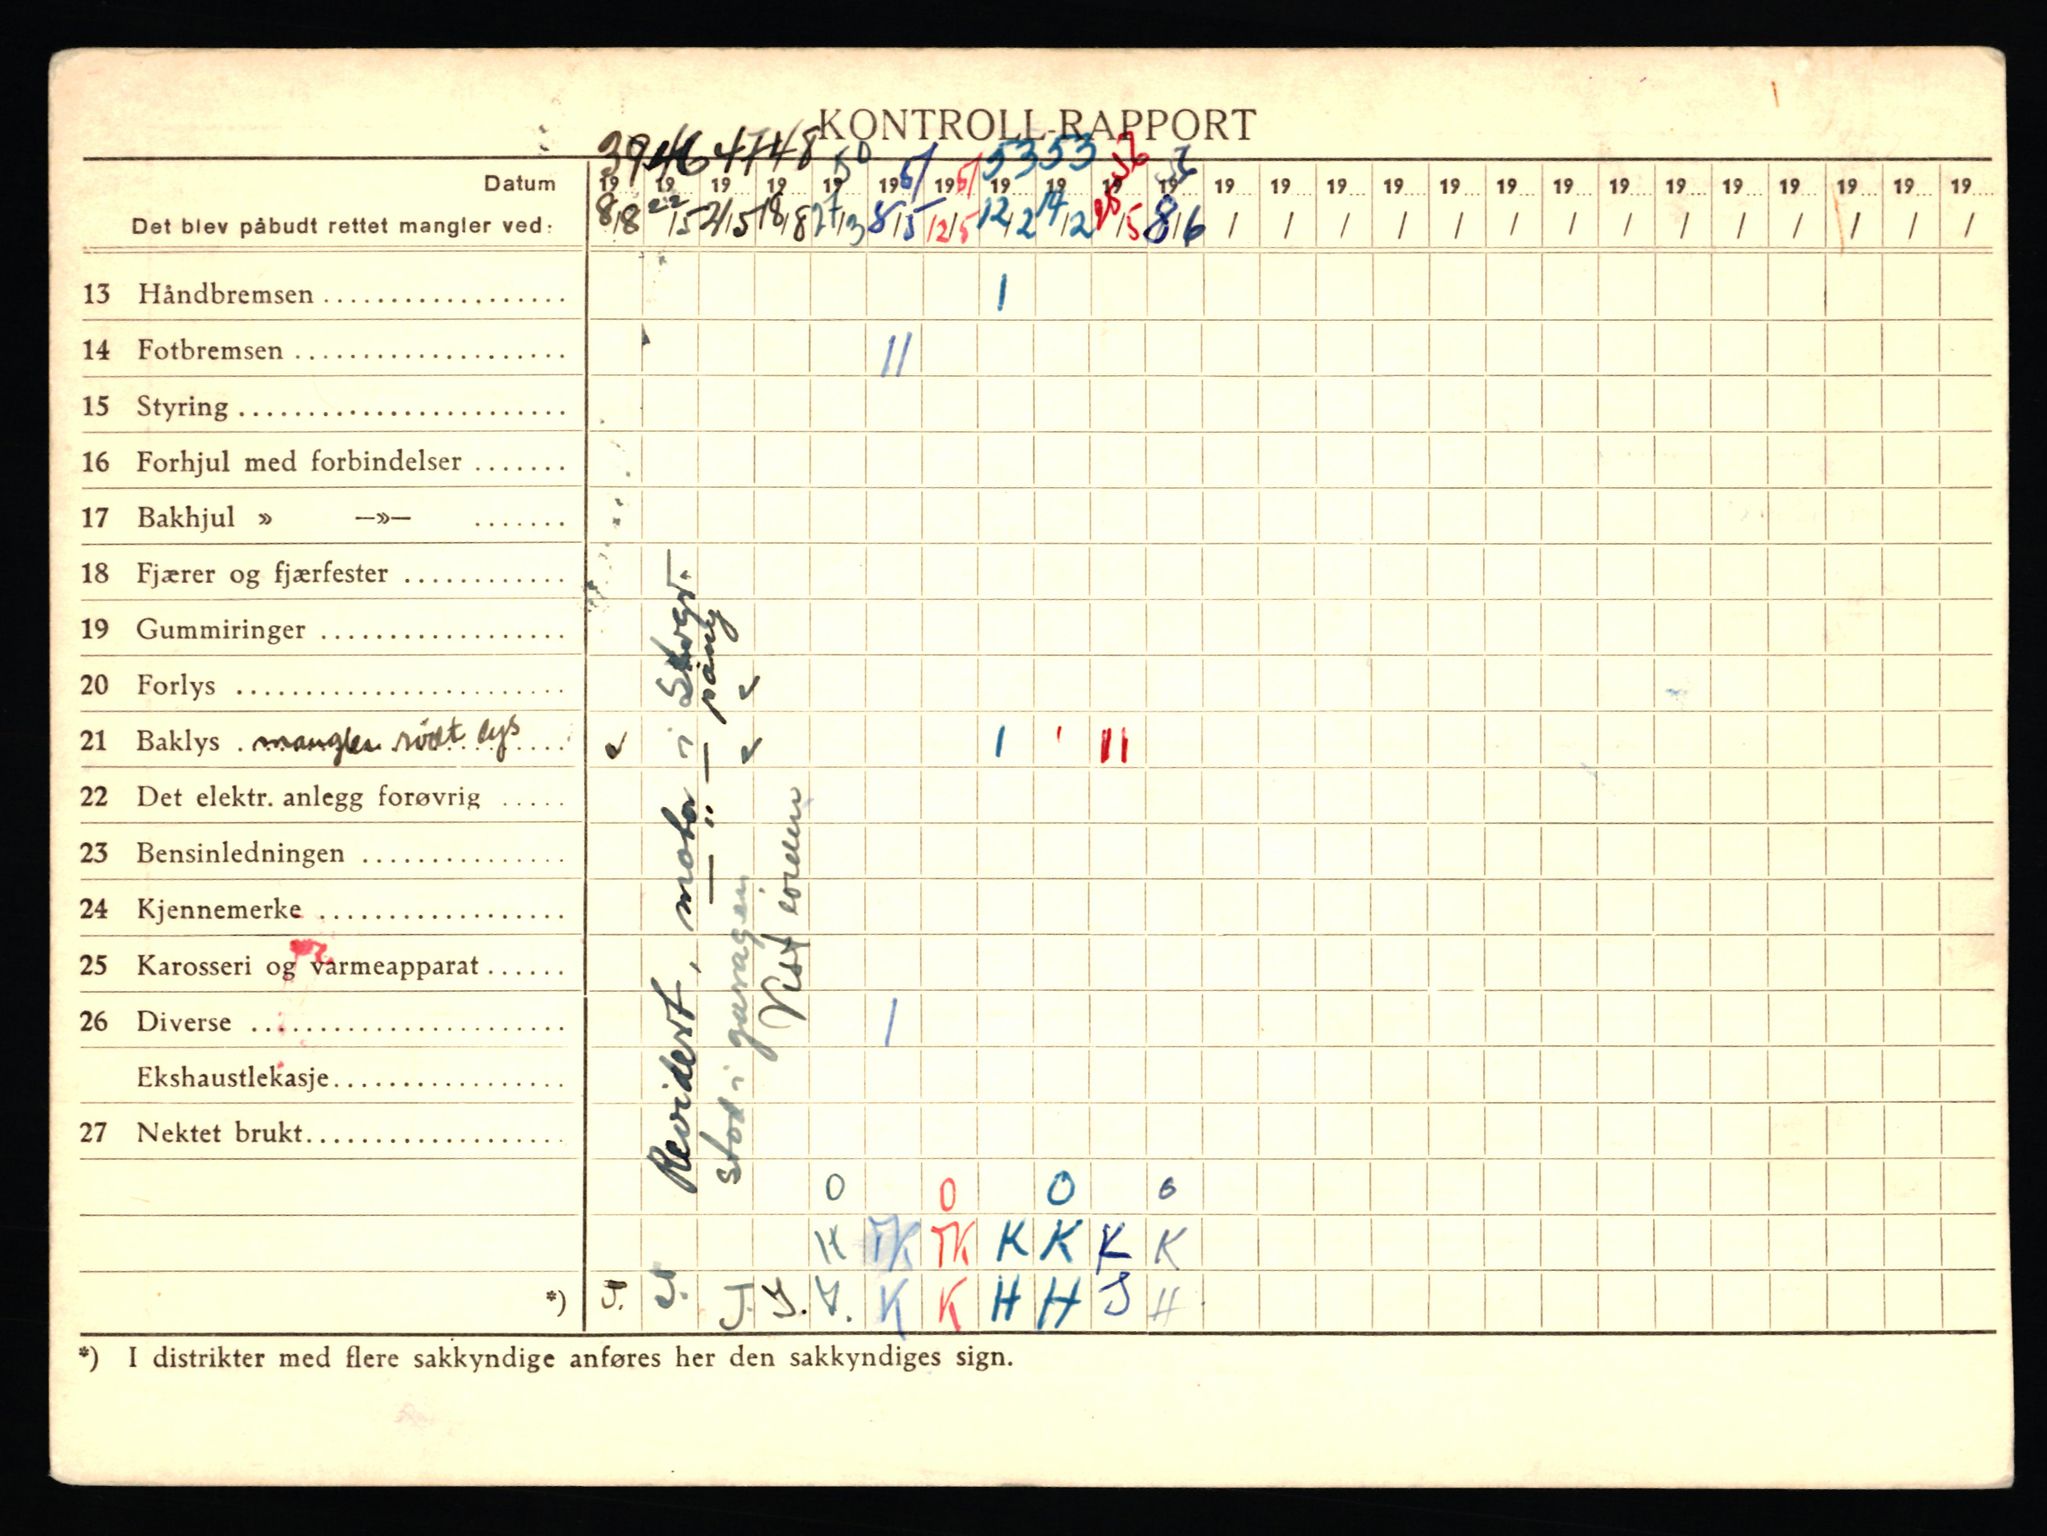 KONTROLL-RAPPORT
39 46 47 48 50 51 51 53 53
Datum 19 19 19 19 19 19 19 19 19 19 19 19 19 19 19 19 19 19 19 19 19 19 19 19 19
Det blev påbudt rettet mangler ved: 8/8 22/5 21/5 18/8 27/3 8/5 12/5 12/2 14/2 28/5 8/6 / / / / / / / / / / / / / /
13 Håndbremsen .................. I
14 Fotbremsen .................... II
15 Styring ........................
16 Forhjul med forbindelser .......
17 Bakhjul » —»— .......
18 Fjærer og fjærfester ............
19 Gummiringer ..................
20 Forlys ........................
21 Baklys . mangler rødt lys I ' II
22 Det elektr. anlegg forøvrig .....
23 Bensinledningen ...............
24 Kjennemerke ..................
25 Karosseri og varmeapparat ......
26 Diverse ....................... /
Ekshaustlekasje.................
27 Nektet brukt...................
Revidert, motor i
— " —
stod i garagen
Vist iorden
0 0 0 0
H TK TK K K K K
*) J. J. J. J. J. K K H H J H
*) I distrikter med flere sakkyndige anføres her den sakkyndiges sign.